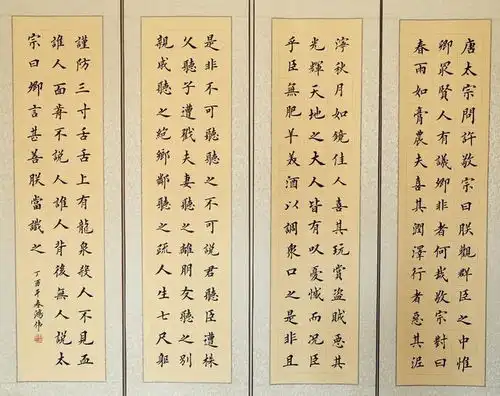 唐太宗問許敬宗曰朕觀群臣之中惟
卿最賢人有議卿非者何哉敬宗對曰
春雨如膏農夫喜其潤澤行者惡其泥
濘秋月如鏡佳人喜其玩賞盜賊惡其
光輝天地之大人皆有以憂憾而况臣
乎臣無肥羊美酒以調衆口之是非且
是非不可聽聽之不可說君聽臣遭株
父聽子遭戮夫妻聽之離朋友聽之別
親戚聽之絕鄉鄰聽之疏人生七尺軀
謹防三寸舌舌上有龍泉殺人不見血
誰人面前不說人誰人背後無人說太
宗曰卿言甚善朕當識之
丁酉年春鴻偉